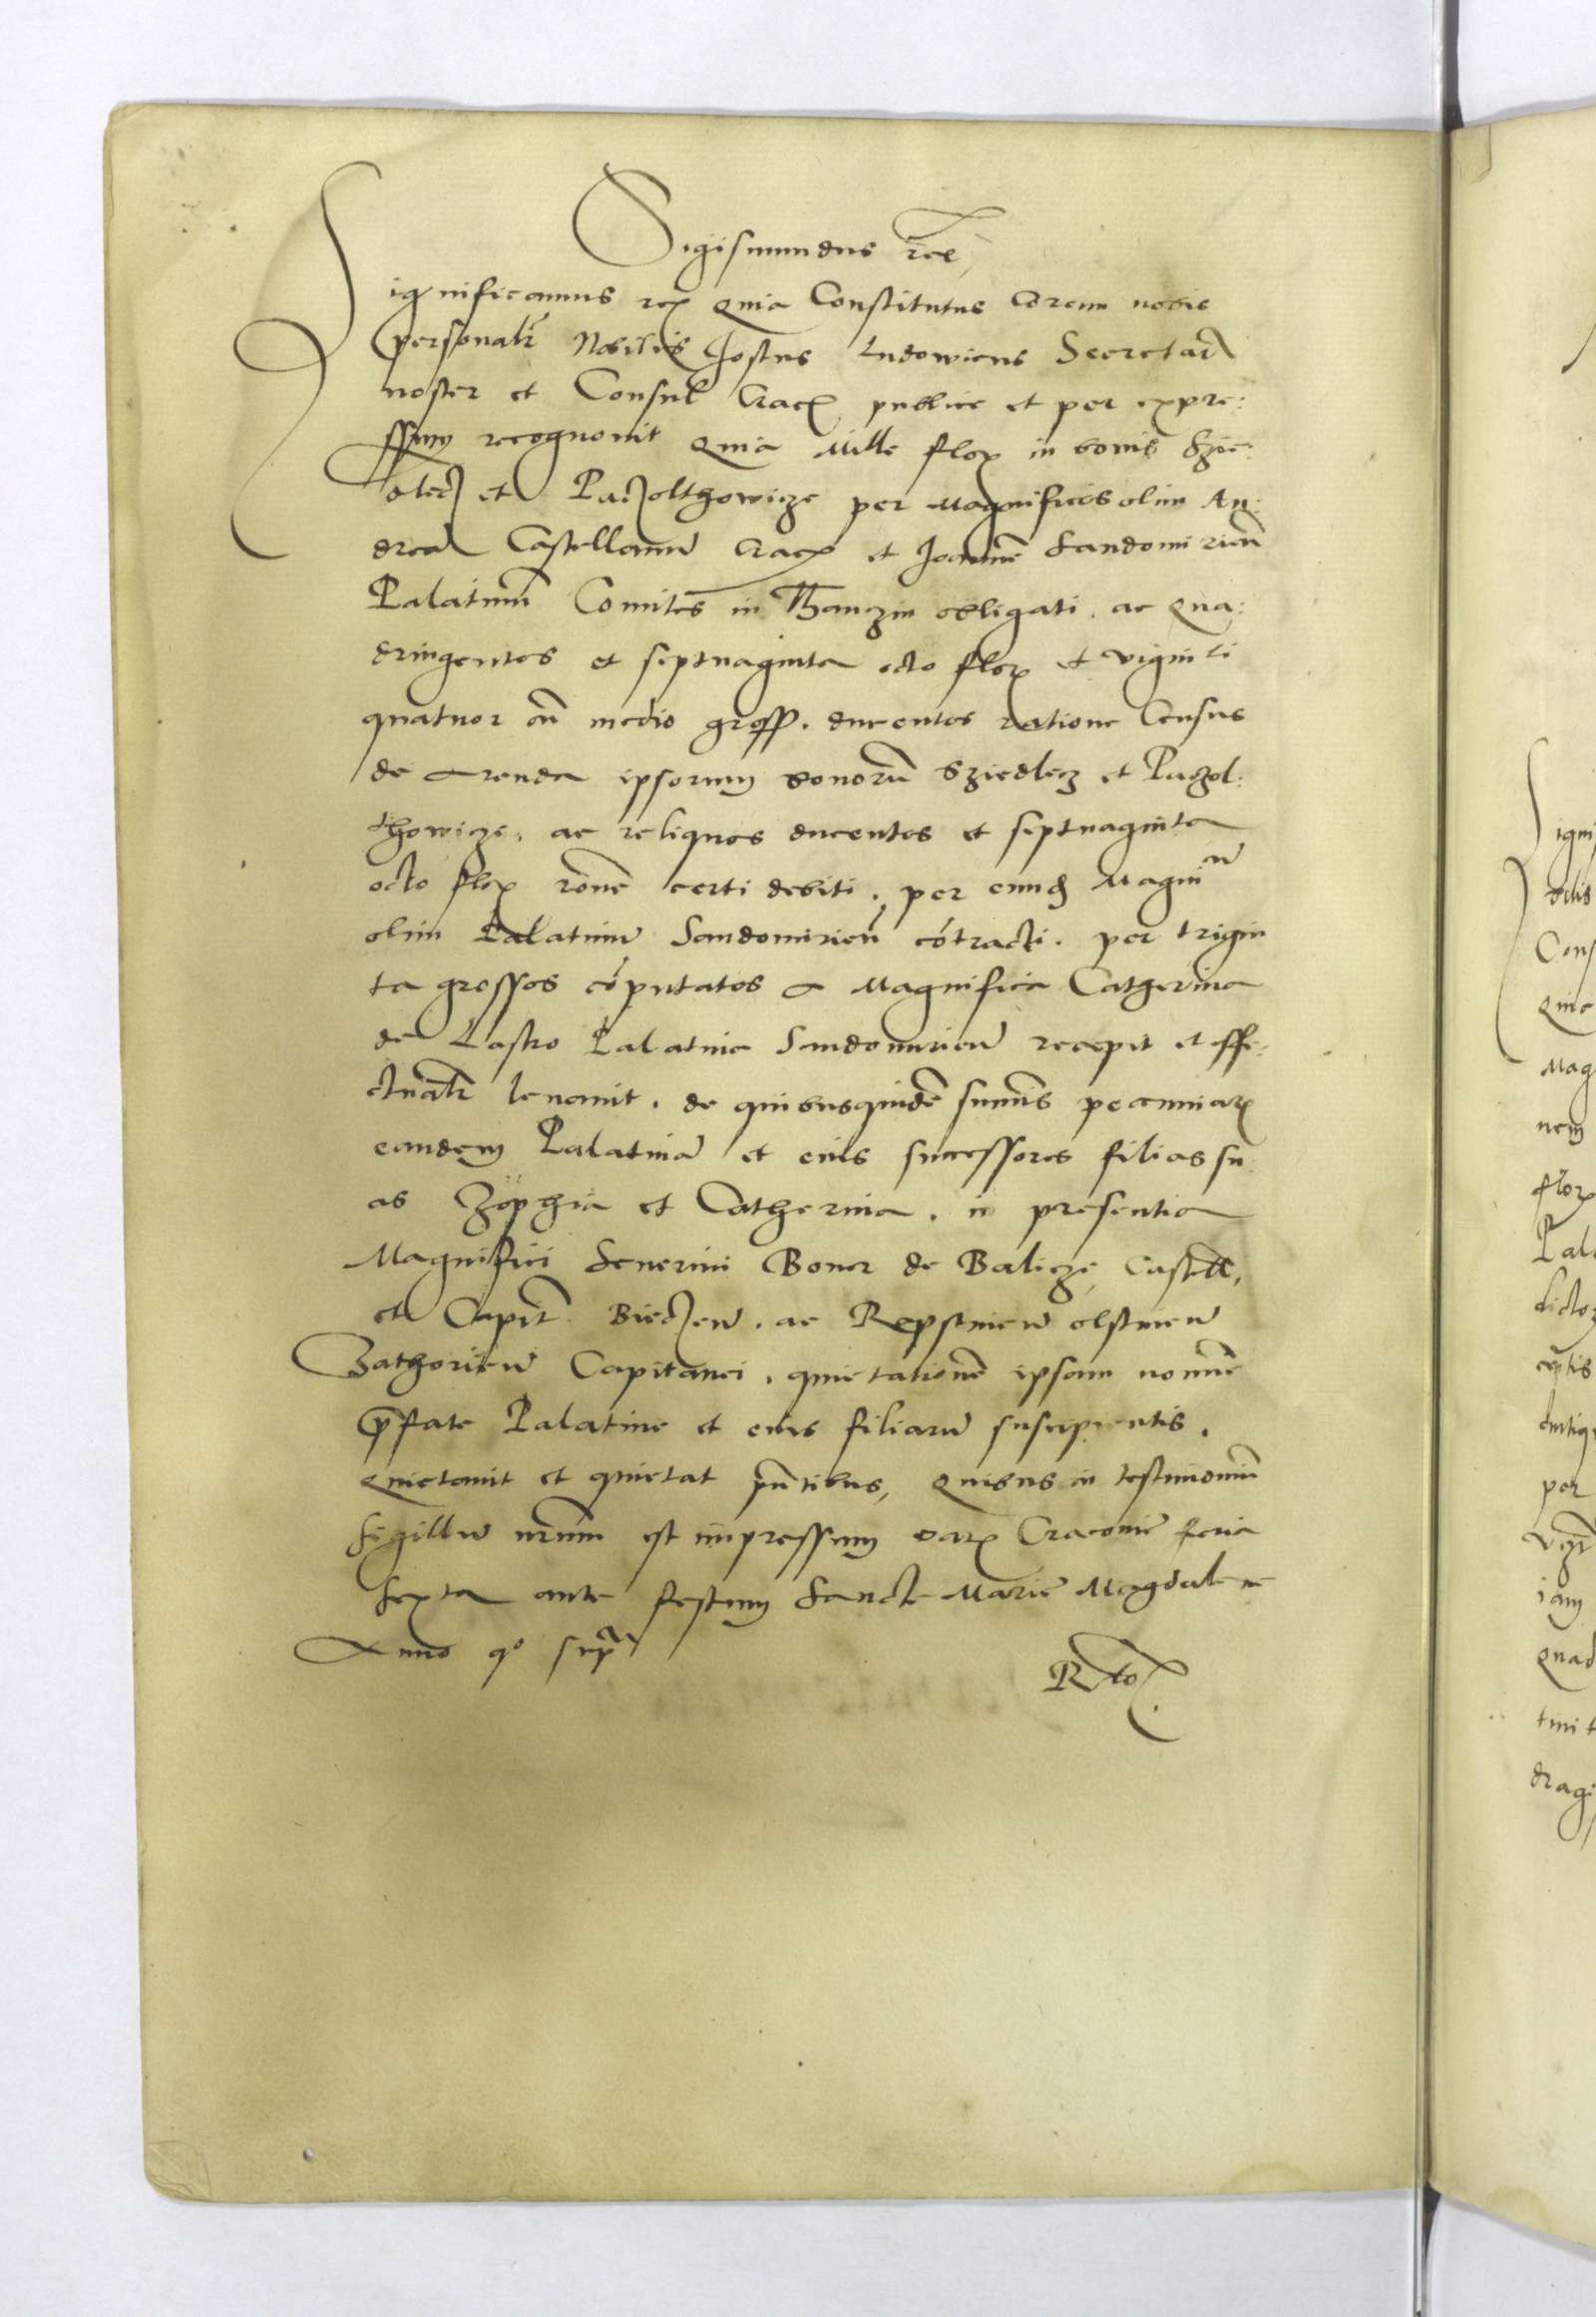 Sigismundus rex
Significamus rex Quia Constitutus Coram nobis
personalr Nobilis Jostus Ludowicus Secretari
noster et Consul Crac publice et per expre:
ssum recognovit Quia Mille flor in bonis Szie:
dlecz et Paczolthowicze per Magnificos olim An:
dream Castellanum Crac et Joannem Sandomirien
Palatinum Comites in Thanczin obligati. ac Qua:
dringentos et septuaginta octo flor et viginti
quatuor cum medio gross. ducentos ratione Census
de arenda ipsorum bonorum Sziedlecz et Paczol:
thowicze. ac reliquos ducentos et septuaginta
octo flor ratione certi debiti. per eund Magnim
olim Palatinum Sandomirien contracti. per trigin
ta grossos computatos a Magnifica Catherina
de Lasko Palatina Sandomirien recepit et effe:
ctualr levavit. de quibusquidem summis pecuniar
eandem Palatinam et eius successores filias su:
as Zophia et Catherina. in presentia
Magnifici Severini Boner de Balicze Castell,
et Capit Bieczen. ac Rapstinen olstinen
Zathorien Capitanei. quietationem ipsam nomine
prefate Palatine et eius filiarum suscipientis.
Quietavit et quietat pntibus, Quibus in testimonium
sigillum nrum est impressum Dat Cracovie feria
sexta ante festum Sancte Marie Magdalene
Anno qo supra